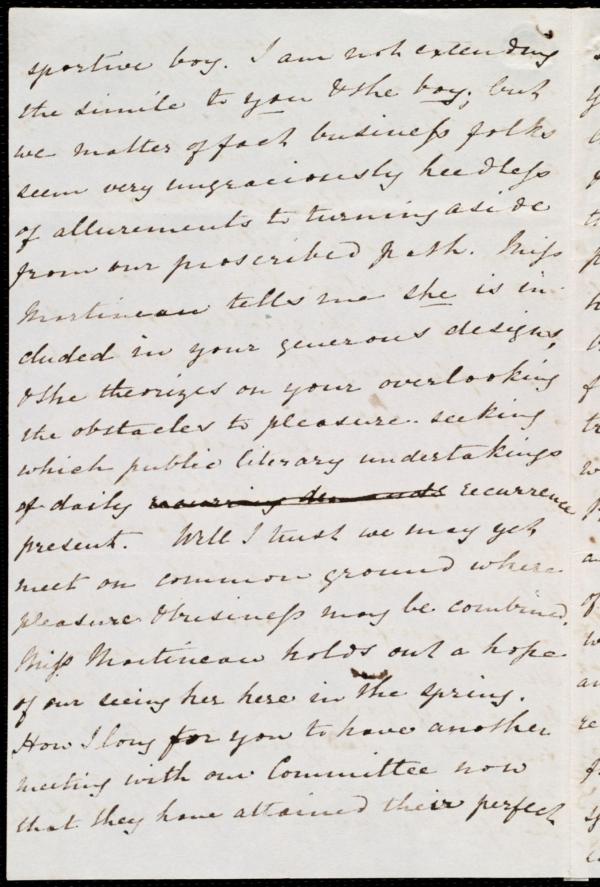 sportive boy. I am not extending
the simile to you & the boy; but
we matter of fact business folks
seem very ungraciously heedless
of allurements to turning aside
from our proscribed path. Miss
Martineau tells me she is in-
cluded in your generous designs,
& she theorizes on your overlooking
the obstacles to pleasure-seeking
which public literary undertakings
of daily recurring demands recurrence
present. Well I trust we may yet
meet on common ground where
pleasure & business may be combined.
Miss Martineau holds out a hope
of our seeing her here in the spring.
How I long for you to have another
meeting with our Committee now
that they have attained their perfect